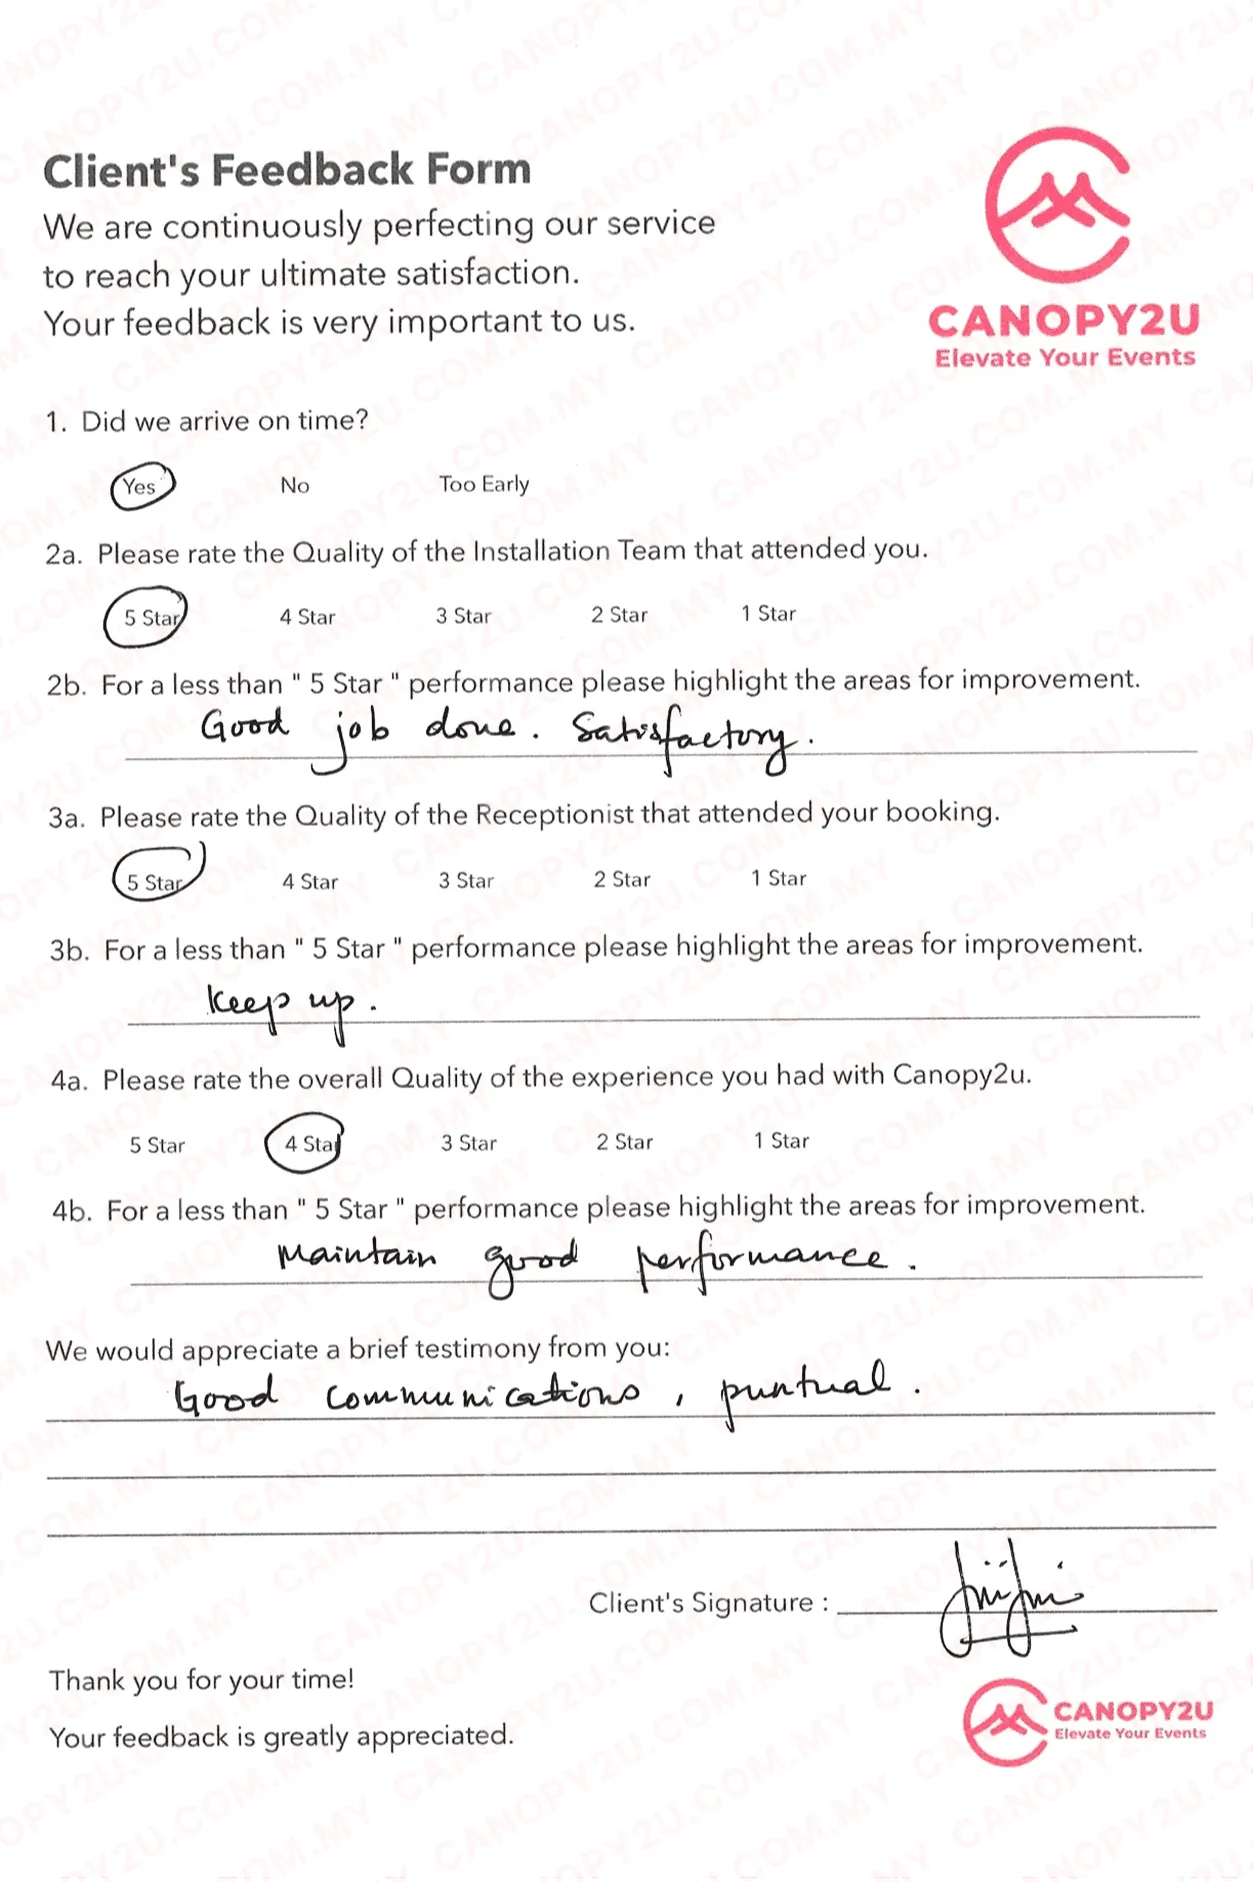 Client's Feedback Form
We are continuously perfecting our service
to reach your ultimate satisfaction.
Your feedback is very important to us.
CANOPY2U
Elevate Your Events
1. Did we arrive on time?
Yes No Too Early
2a. Please rate the Quality of the Installation Team that attended you.
5 Star 4 Star 3 Star 2 Star 1 Star
2b. For a less than " 5 Star " performance please highlight the areas for improvement.
Good job done. Satisfactory.
3a. Please rate the Quality of the Receptionist that attended your booking.
5 Star 4 Star 3 Star 2 Star 1 Star
3b. For a less than " 5 Star " performance please highlight the areas for improvement.
keep up.
4a. Please rate the overall Quality of the experience you had with Canopy2u.
5 Star 4 Star 3 Star 2 Star 1 Star
4b. For a less than " 5 Star " performance please highlight the areas for improvement.
Maintain good performance.
We would appreciate a brief testimony from you:
Good communications, puntual.
Client's Signature :
Thank you for your time!
Your feedback is greatly appreciated.
CANOPY2U
Elevate Your Events
CANOPY2U.COM.MY